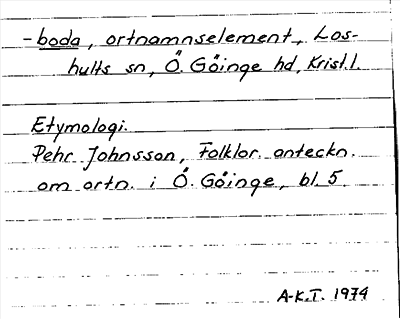 -boda, ortnamnselement, Los-
hults sn, Ö. Göinge hd, Krist.l.
Etymologi.
Pehr Johnsson, Folklor. anteckn.
om ortn. i Ö. Göinge, bl. 5.
A-K.T. 1974